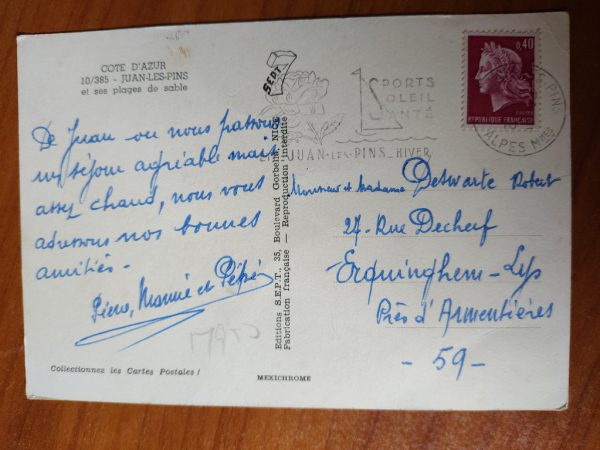 COTE D'AZUR
10/385 - JUAN-LES-PINS
et ses plages de sable
De Juan ou nous passons
un séjour agréable mais
assez chaud, nous vous
adressons nos bonnes
amitiés -
Mamie et Pépé
Collectionnez les Cartes Postales !
MEXICHROME
SEPT
Editions S.E.P.T., 35, Boulevard Gorbella, NICE
Fabrication française — Reproduction interdite
SPORTS
SOLEIL
SANTÉ
JUAN-LES-PINS HIVER
0,40
POSTES
REPUBLIQUE FRANÇAISE
PINS
ALPES MMES
Monsieur et Madame Deswarte Robert
27-Rue Decherf
Erquinghem-Lys
Près d'Armentières
- 59 -